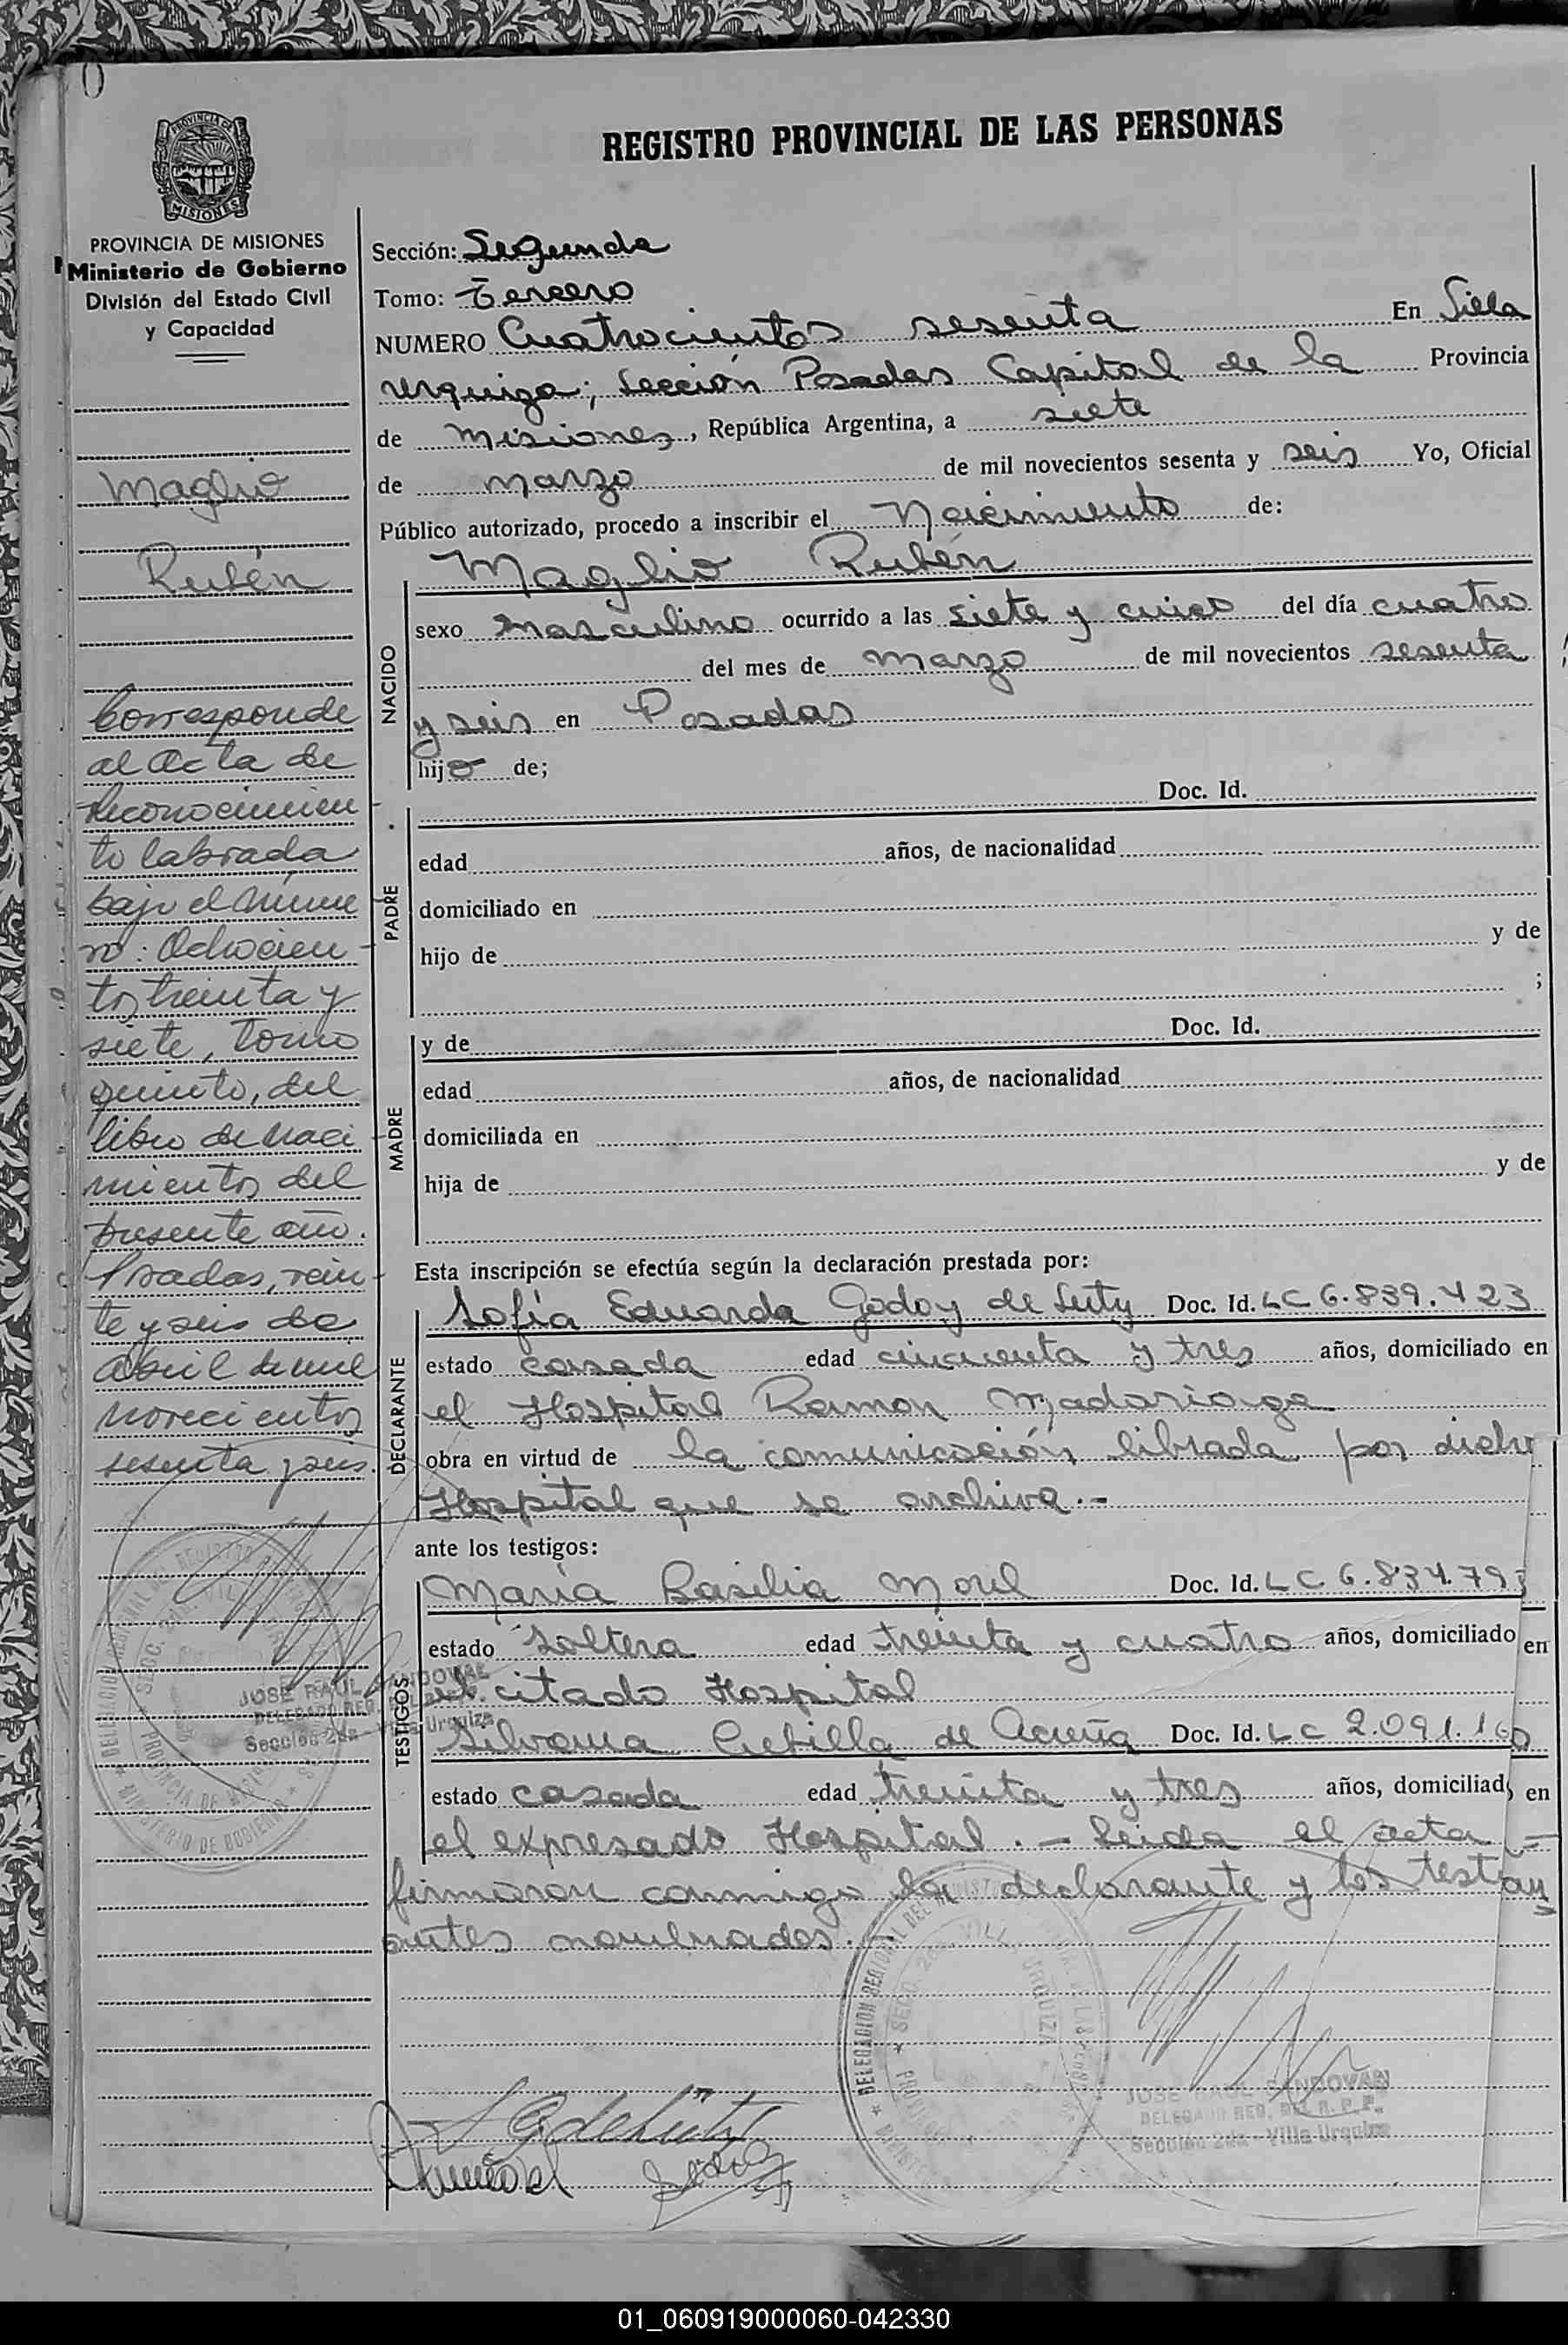 REGISTRO PROVINCIAL DE LAS PERSONAS
PROVINCIA DE
MISIONES
PROVINCIA DE MISIONES
Ministerio de Gobierno
División del Estado Civil
y Capacidad
Maglio
Rubén
Corresponde
al Acta de
Reconocimien
to labrada
bajo el núme
ro: Ochocien
tos treinta y
siete, Tomo
quinto, del
libro de Naci
mientos del
presente año.
Posadas, vein
te y seis de
abril de mil
novecientos
sesenta y seis.
Sección: Segunda
Tomo: Tercero
NUMERO Cuatrocientos sesenta En Villa
Urquiza; Sección Posadas Capital de la Provincia
de Misiones, República Argentina, a siete
de marzo de mil novecientos sesenta y seis Yo, Oficial
Público autorizado, procedo a inscribir el Nacimiento de:
NACIDO
Maglio Rubén
sexo masculino ocurrido a las siete y cinco del día cuatro
del mes de marzo de mil novecientos sesenta
y seis en Posadas
hijo de;
PADRE
Doc. Id.
edad años, de nacionalidad
domiciliado en
hijo de y de
;
MADRE
y de Doc. Id.
edad años, de nacionalidad
domiciliada en
hija de y de
Esta inscripción se efectúa según la declaración prestada por:
DECLARANTE
Sofía Eduarda Godoy de Luty Doc. Id. LC 6.839.423
estado casada edad cincuenta y tres años, domiciliado en
el Hospital Ramon Madariaga
obra en virtud de la comunicación librada por dicho
Hospital que se archiva.-
ante los testigos:
TESTIGOS
María Basilia Morel Doc. Id. LC 6.834.793
estado soltera edad treinta y cuatro años, domiciliado en
el citado Hospital
Silvana de Acuña Doc. Id. LC 2.091.160
estado casada edad treinta y tres años, domiciliado en
el expresado Hospital.- Leida el acta
firmaron conmigo la declarante y los
nombrados.-
JOSE RAUL SANDOVAL
DELEGADO REG. DEL R. P. P.
Sección 2da - Villa Urquiza
JOSE RAUL SANDOVAL
DELEGADO REG. DEL R. P. P.
Sección 2da - Villa Urquiza
01_060919000060-042330